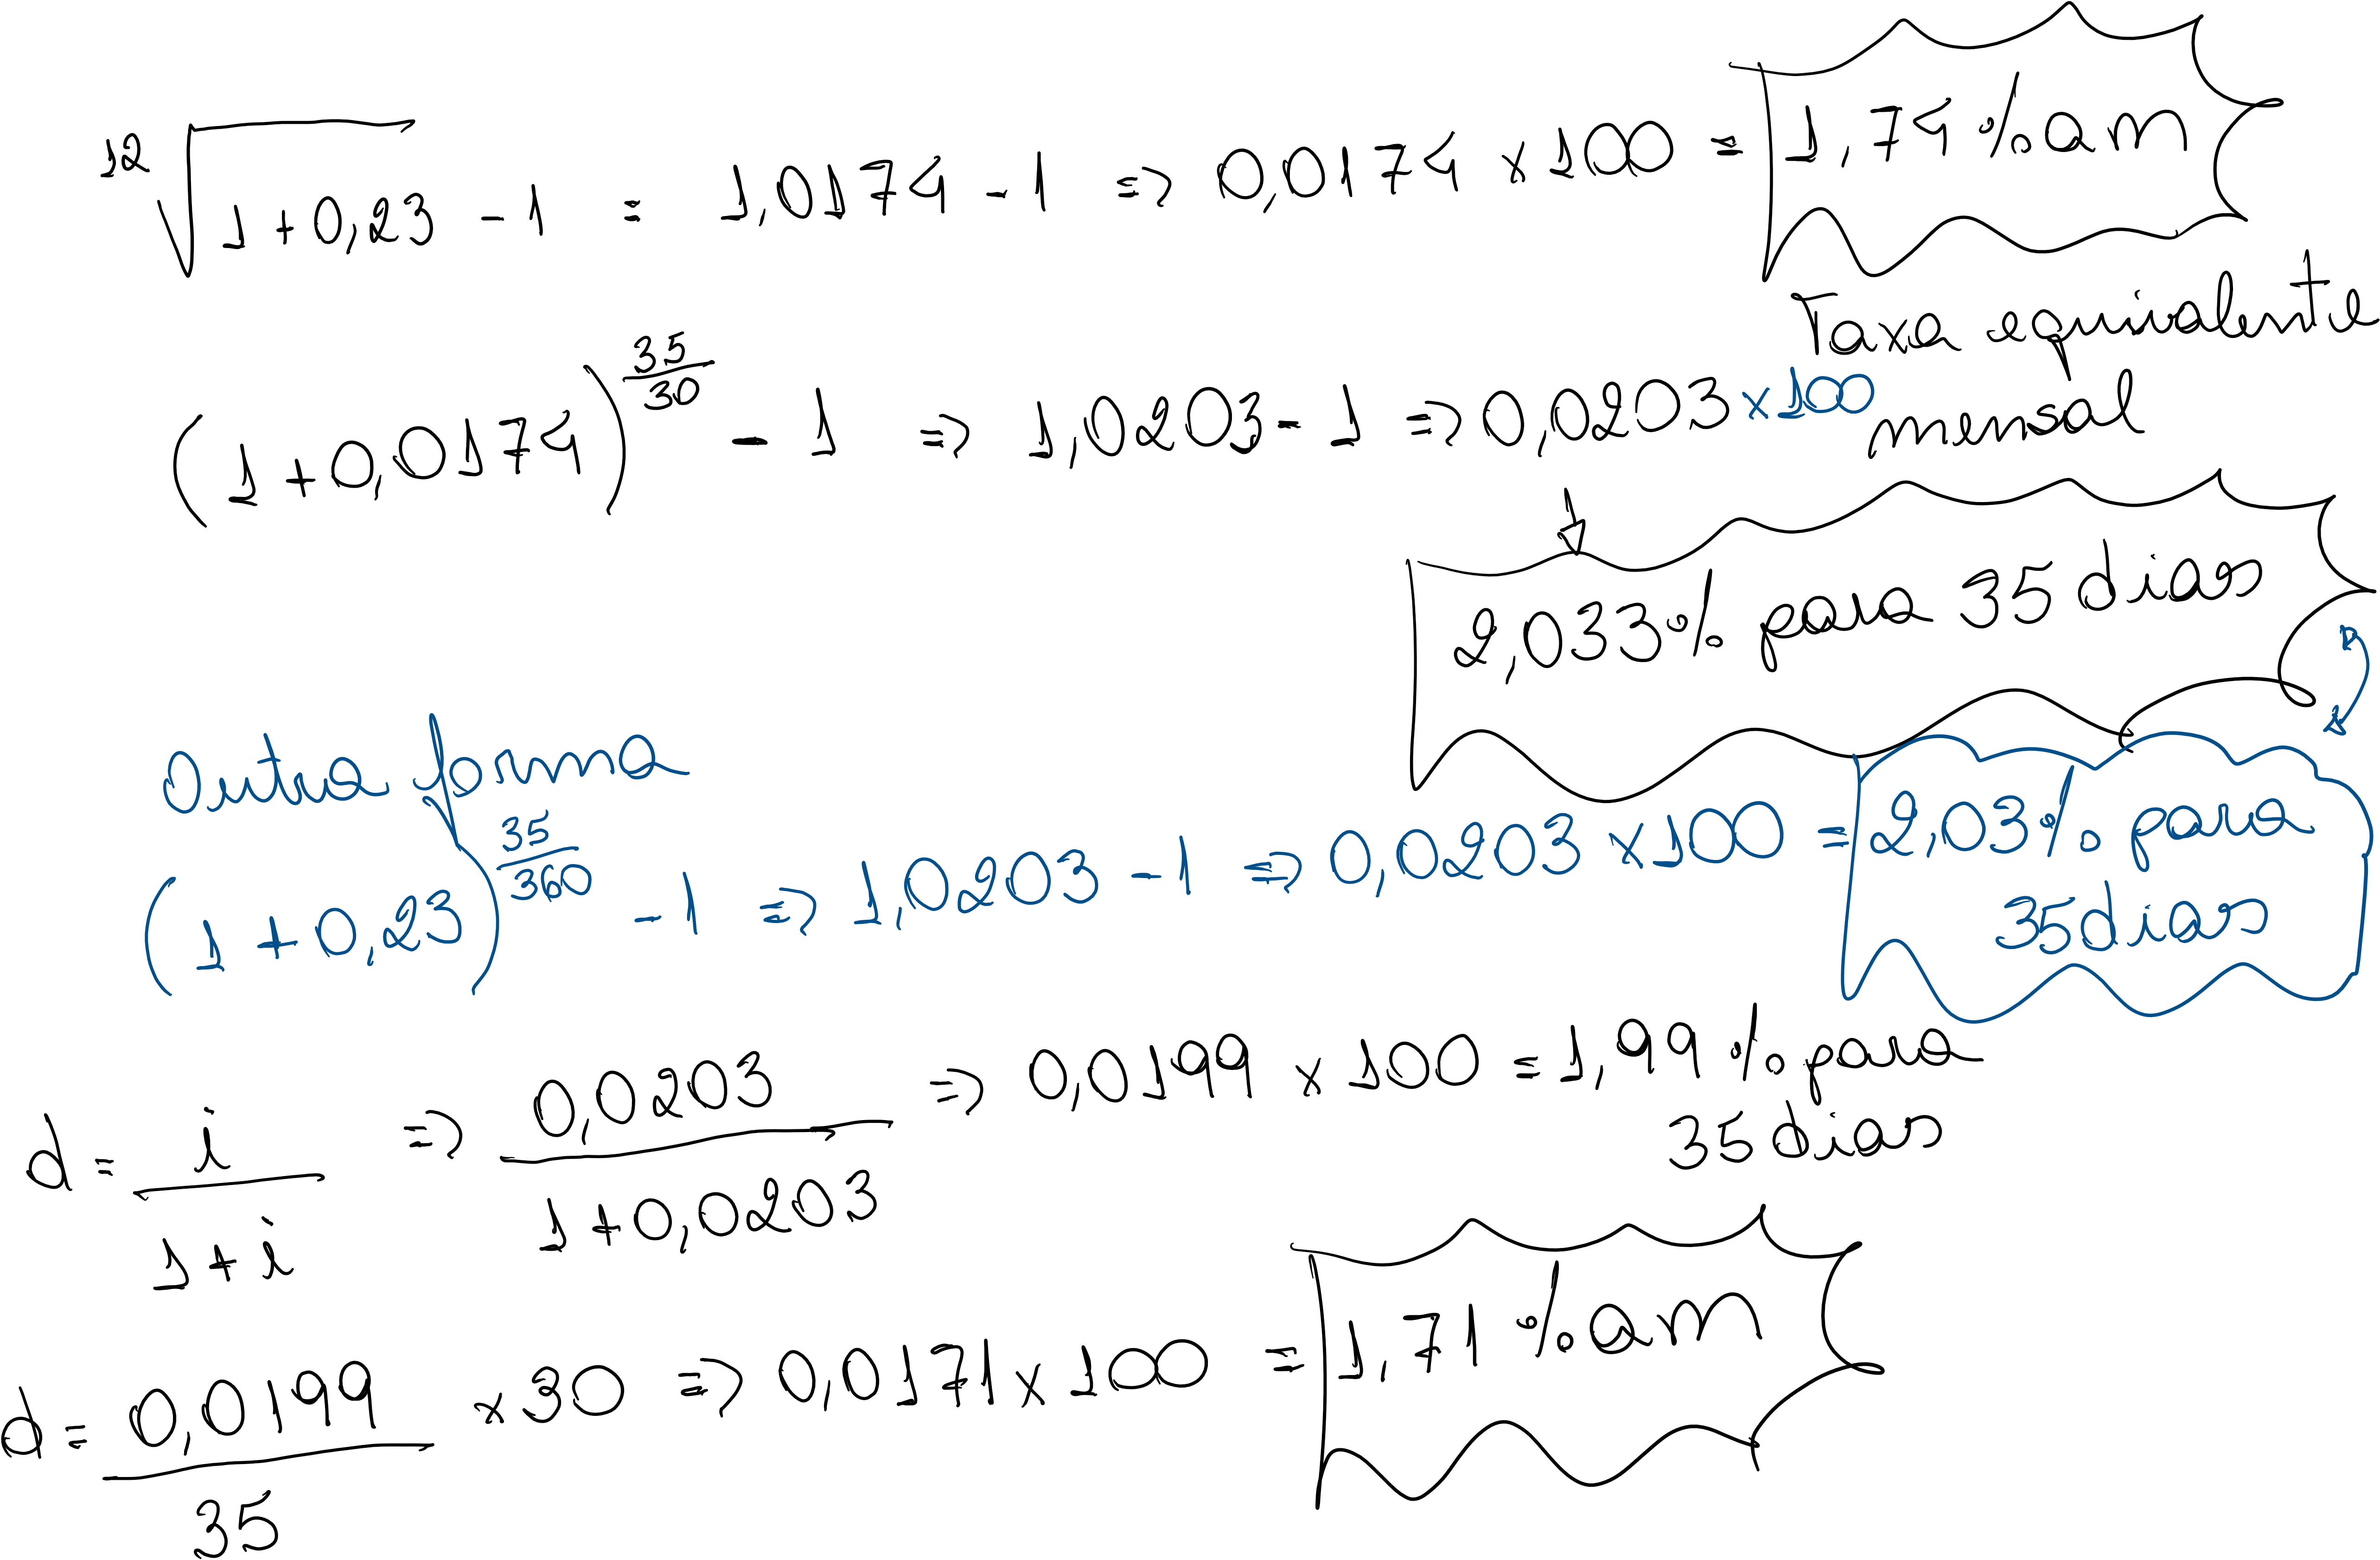 ¹²√(1+0,23) - 1 = 1,0174 - 1 => 0,0174 x 100 = 1,74 % am
Taxa equivalente
mensal
(1+0,0174)^(35/30) - 1 => 1,0203 - 1 => 0,0203 x100
2,033% para 35 dias
Outra forma
(1+0,23)^(35/360) - 1 => 1,0203 - 1 => 0,0203 x100 = 2,03% para
35 dias
d = i/(1+i) => 0,0203/(1+0,0203) => 0,0199 x 100 = 1,99 % para
35 dias
d = 0,0199/35 x30 => 0,0171 x 100 = 1,71 % am